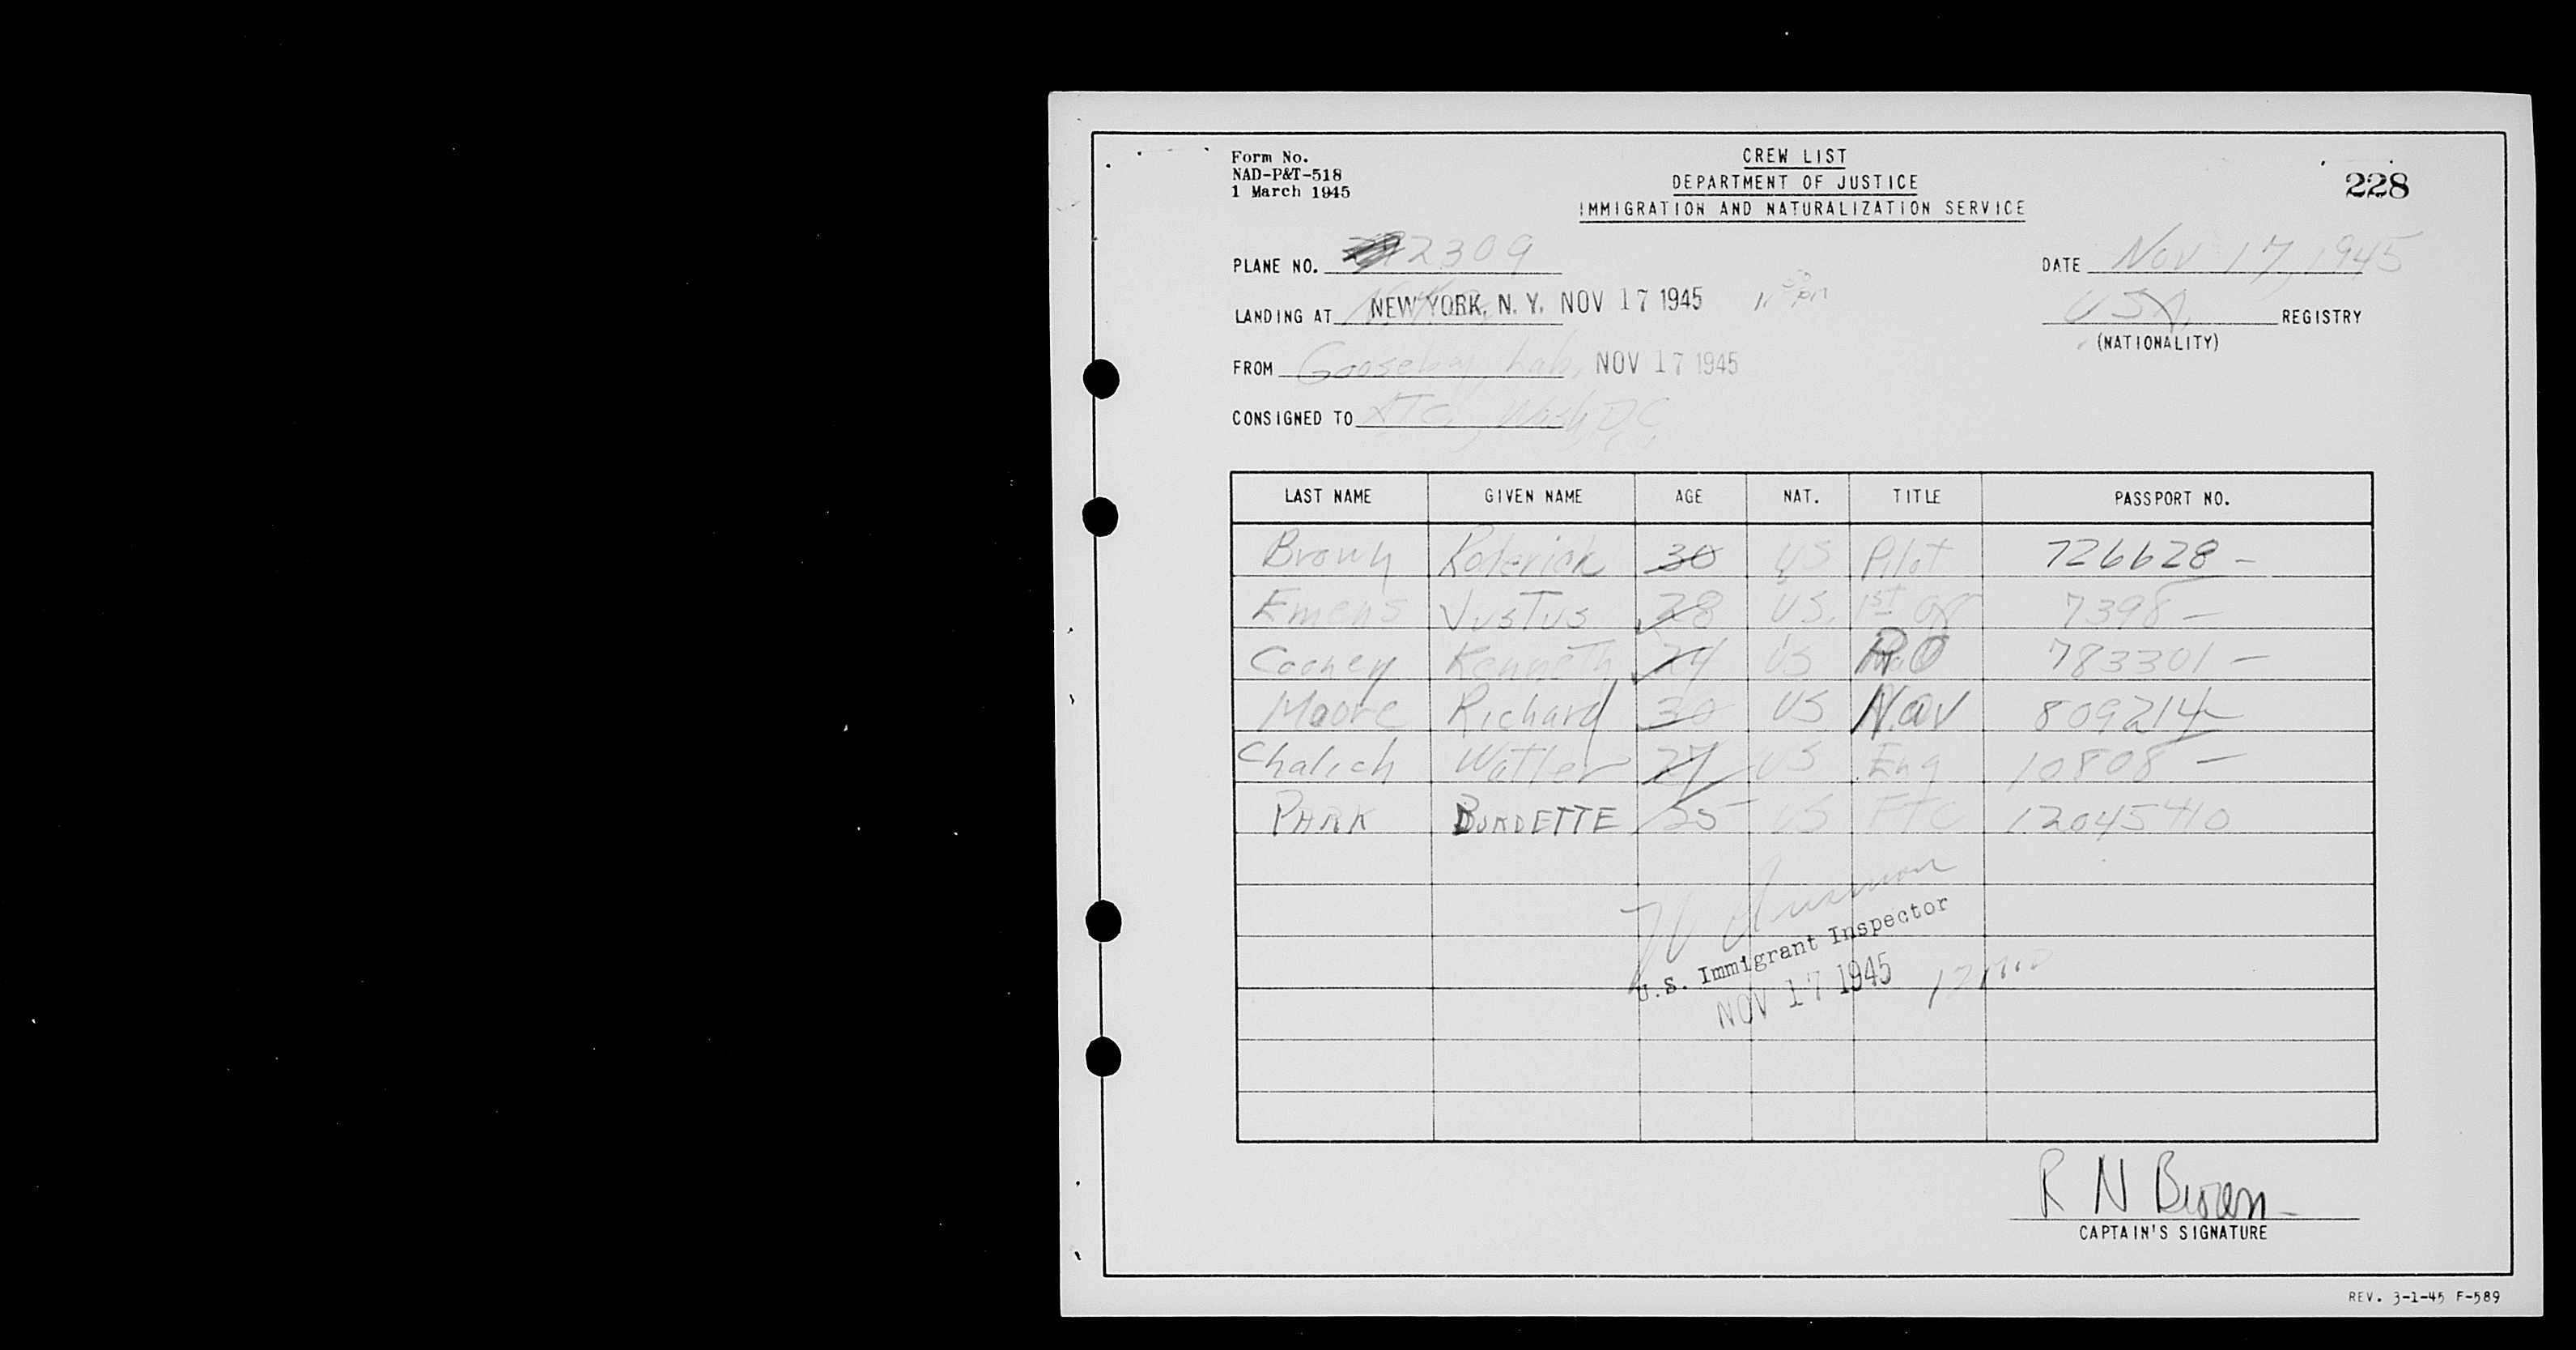 Form No.
NAD-P&T-518
1 March 1945
CREW LIST
DEPARTMENT OF JUSTICE
IMMIGRATION AND NATURALIZATION SERVICE
228
PLANE NO. 2309
DATE Nov 17, 1945
LANDING AT NEW YORK, N. Y. NOV 17 1945
USA REGISTRY
(NATIONALITY)
FROM Goosebay, Lab. NOV 17 1945
CONSIGNED TO ATC, Wash, D.C.
LAST NAME GIVEN NAME AGE NAT. TITLE PASSPORT NO.
Brown Roderick 30 US Pilot 726628 -
Emens Justus 28 US. 1st off 7398 -
Cooney Kenneth 24 US RO 783301 -
Moore Richard 30 US Nav 809214 -
Chalich Watler 27 US Eng 10808 -
PARK BURDETTE 25 US FTC 12045410
U.S. Immigrant Inspector
NOV 17 1945
R N Brown
CAPTAIN'S SIGNATURE
REV. 3-1-45 F-589